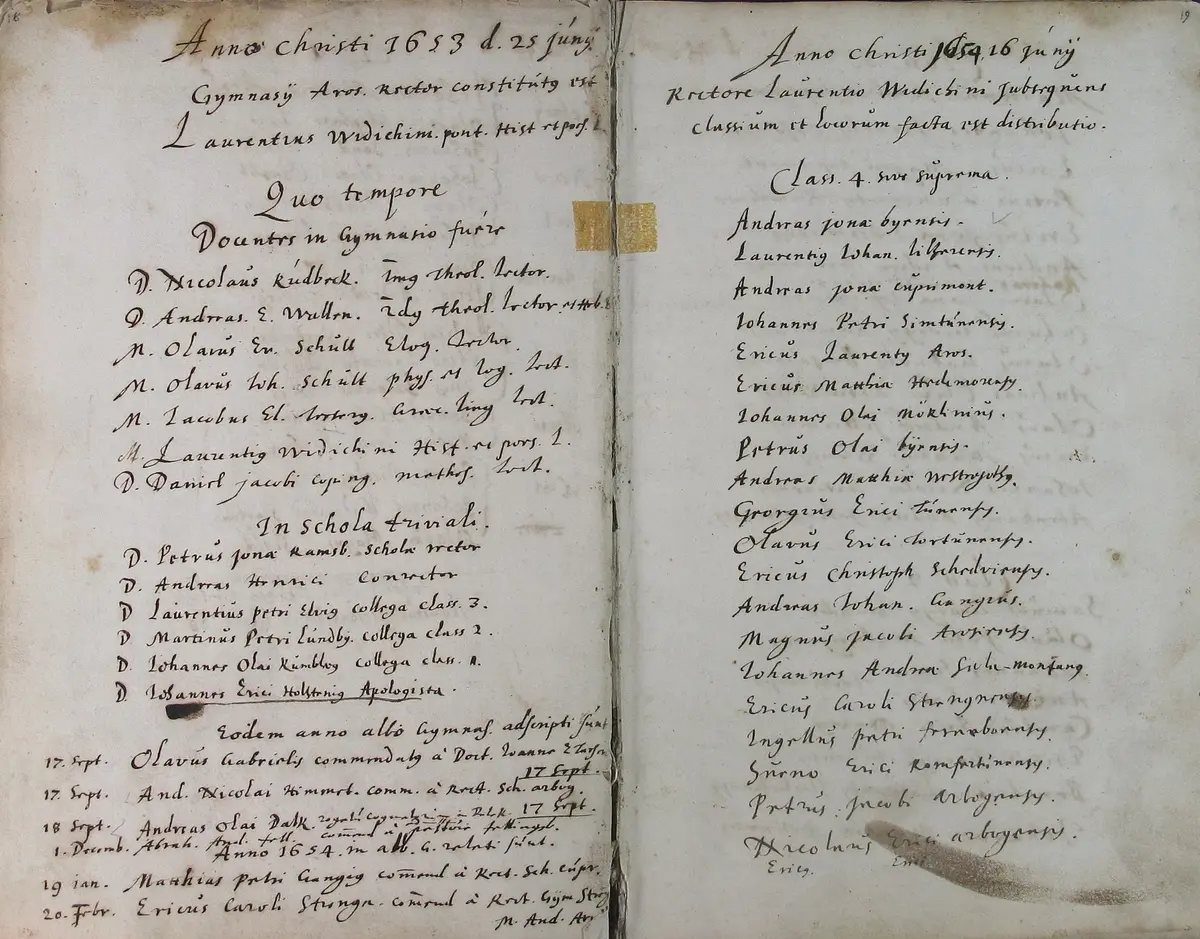 Anno Christi 1653 d. 25 júnÿ
Gymnasÿ Aros. Rector constitútg est
Laurentius Widichini. pont. Hist et poës. L
Quo tempore
Docentes in Gymnasio fuére
D. Nicolaús Rúdbeck. Theol. Lector.
D. Andreas. E. Wallen. Theol. Lector et Heb.
M. Olavús Er. Schúlt Eloq. Lector.
M. Olavús Ioh. Schúlt phys. et Log. Lect.
M. Iacobus El. Graec. ling Lect.
M. Laurentig Widichini Hist. et poes. L.
D. Daniel jacobi coping. mathes. Lect.
In Schola triviali.
D. Petrús jonæ Ramsb. Scholæ rector
D. Andreas Henrici Conrector
D Laúrentiús petri Elvig collega class. 3.
D Martinús Petri Lúndbg. collega class 2.
D. Iohannes Olai Rúmblog collega class. 1.
D Iohannes Erici Holstenig Apologista.
Eodem anno albo Gymnas. adscripti súnt
17. Sept. Olavús Gabrielis commendatg à Doct. Ioanne
17 Sept.
17. Sept. And. Nicolai Himmet. comm. à Rect. Sch. arbog.
17 Sept.
18 Sept. Andreas Olai Dalk.
1. Decemb. Abrah. And. fell. comend à Pastore fellingsb.
Anno 1654. in alb. G. relati súnt.
19 jan. Matthias Petri Gangig comend à Rect. Sch. cúpr.
20. Febr. Ericús Caroli Strenge. comend à Rect. Gÿm Streg
M. And. Ar
19
Anno Christi 1654 16 júnÿ
Rectore Laúrentio Widichini Subsequens
classium et locorum facta est distributio.
Class. 4. sive súprema.
Andreas jonæ byensis.
Laurentig Iohan.
Andreas jonæ cúprimont.
Iohannes Petri Simtúnensis.
Ericús Laurentÿ Aros.
Ericús Matthiæ Hedemorensis.
Iohannes Olai Mökliniús.
Petrús Olai bÿensis.
Andreas Matthiæ Westrogothg.
Georgiús Erici túnensis.
Olavús Erici tortúnensis.
Ericús Christoph Schedviensis.
Andreas Iohan. Gangiús.
Magnús jacobi Arosiensis.
Iohannes Andreæ Sala-montang.
Ericús Caroli Strengnensis.
Ingellús petri ferneboensis.
Súeno Erici Romfertúnensis.
Petrús jacobi arbogensis.
Nicolaus Erici arbogensis.
Ericg.